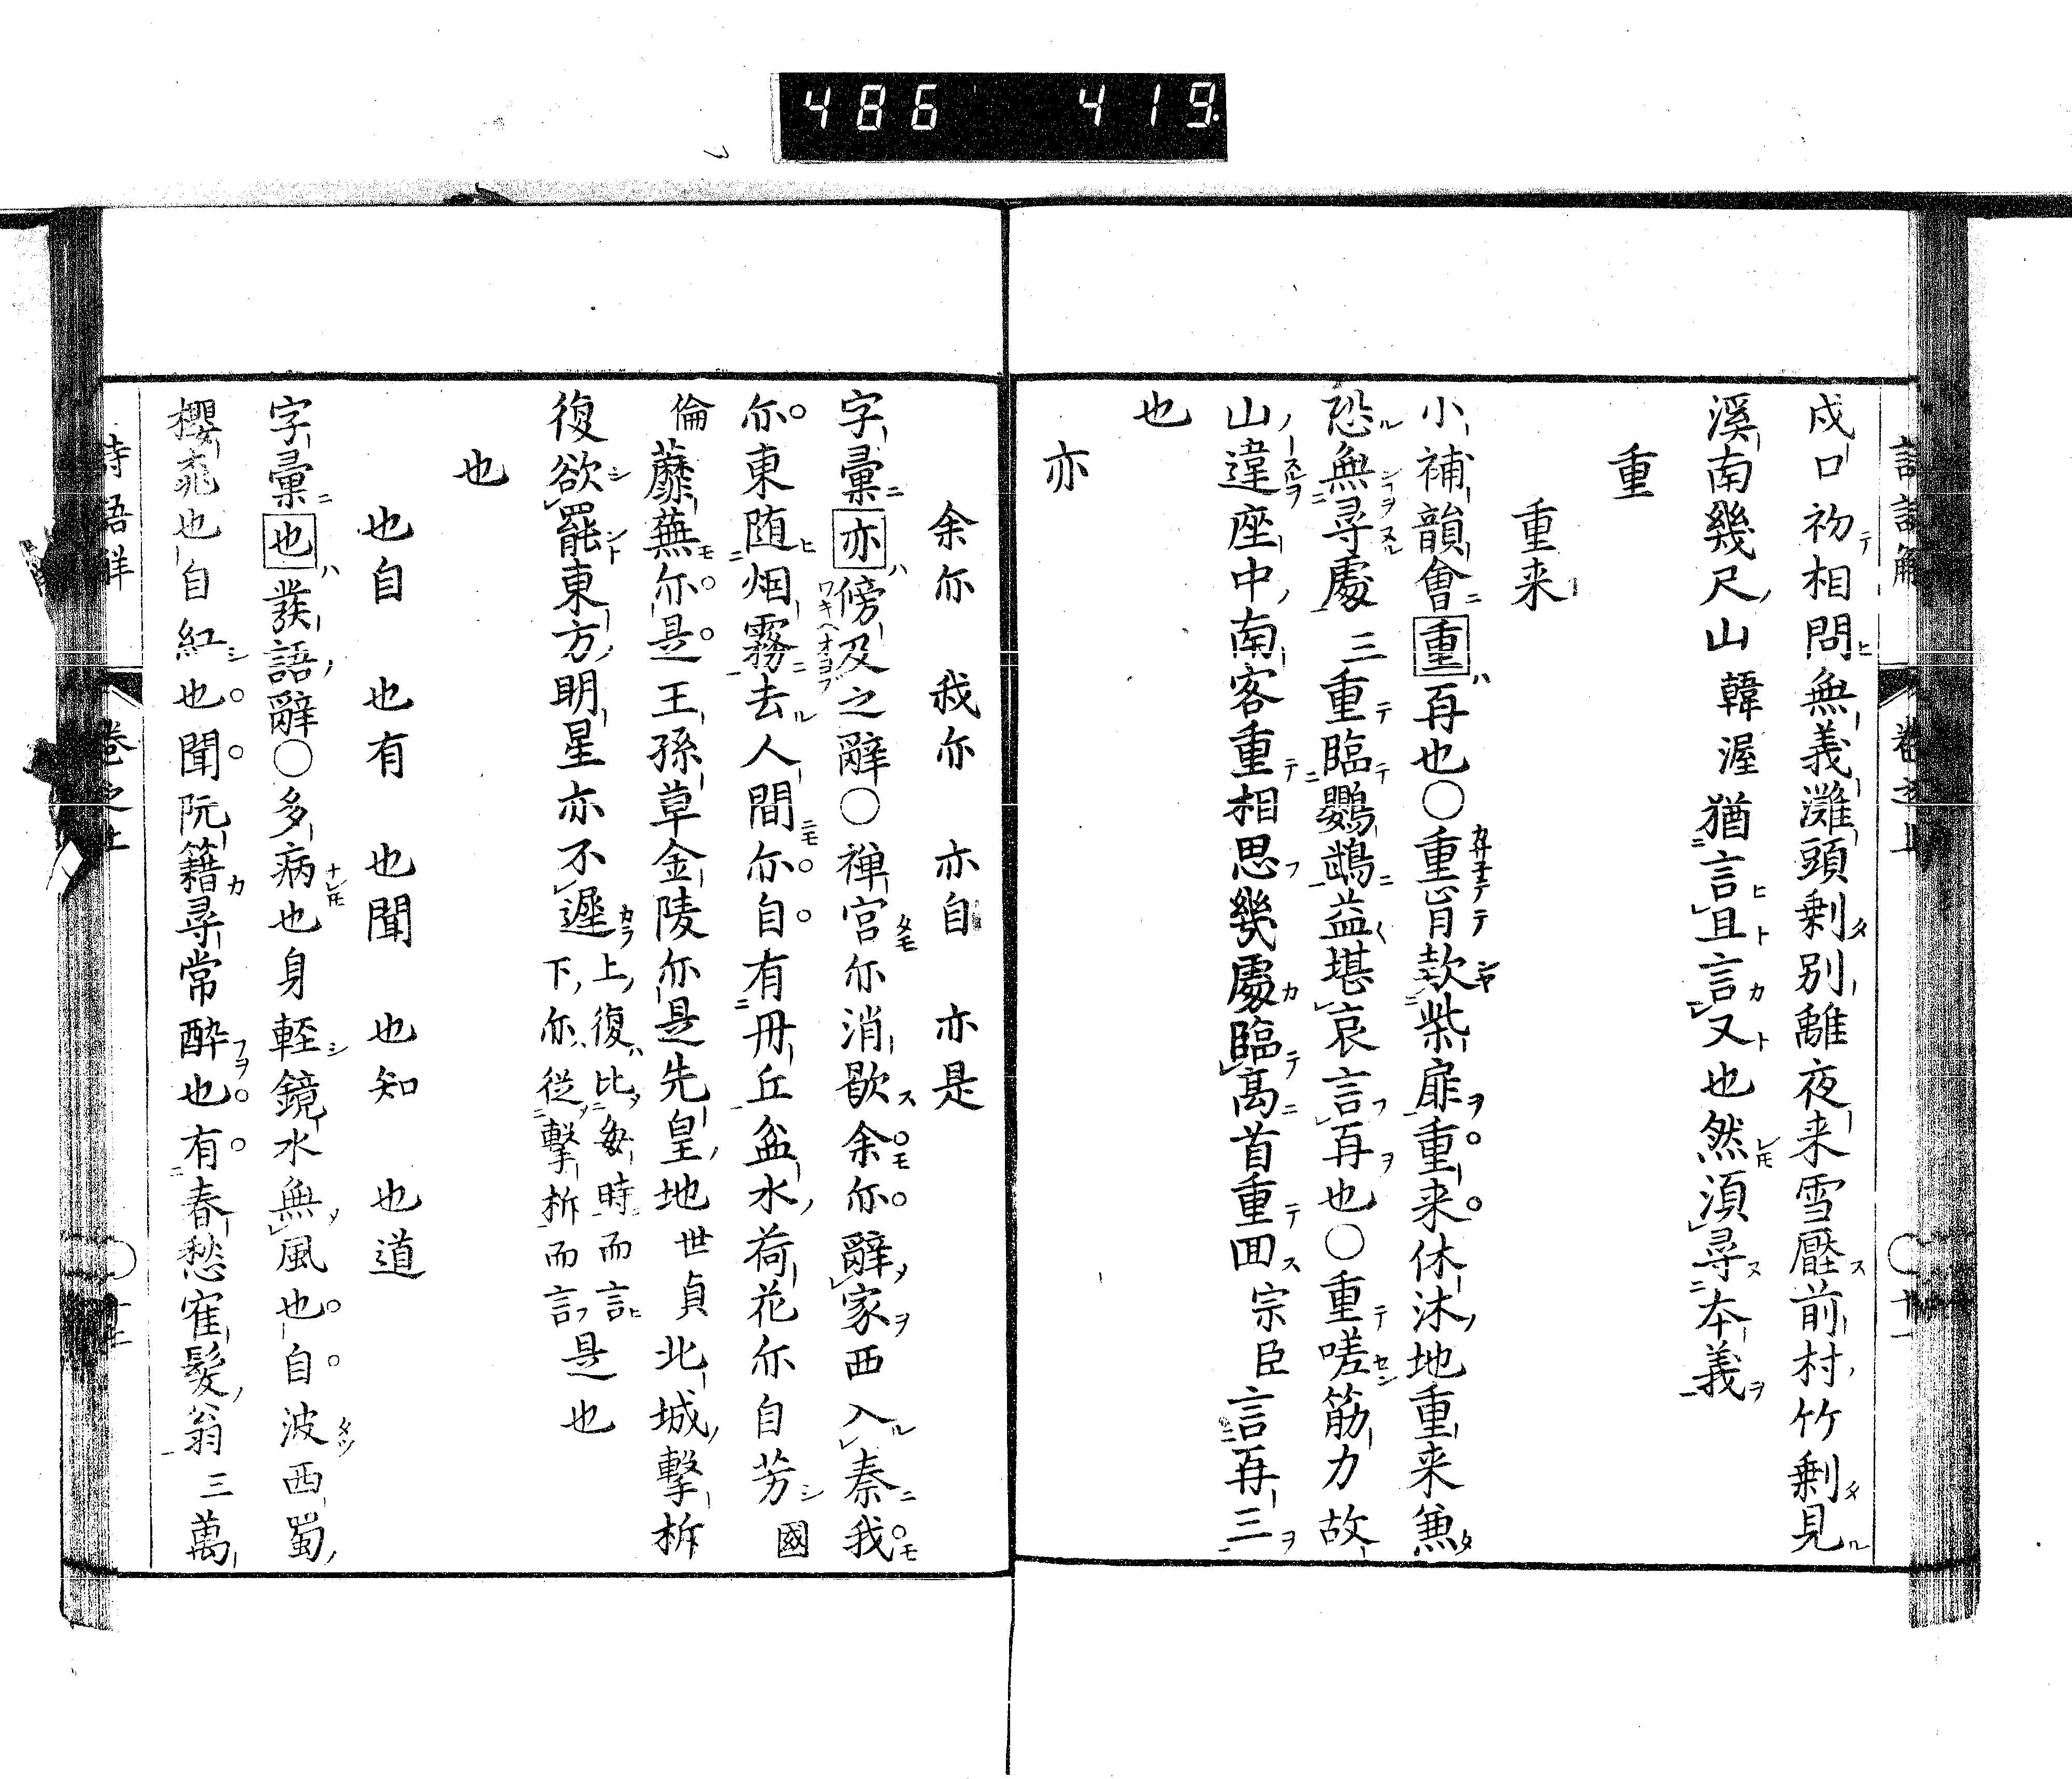 486 419
戍口初相問無義灘頭剰別離夜来雪壓前村竹剰見
溪南幾尺山韓渥猶言且言又也然須尋本義
重
重来
小補韻會重再也○重肯欵柴扉重来休沐地重来兼
恐無尋處三重臨鸚鵡益堪哀言再也○重嗟筋力故
山違座中南客重相思幾處臨高首重囬宗臣言再三
也
亦
余亦 我亦 亦自 亦是
字彙亦傍及之辭○禅宫亦消歇余亦辭家西入秦我
亦東随烟霧去人間亦自有丹丘盆水荷花亦自芳國
倫蘼蕪亦是王孫草金陵亦是先皇地世貞北城擊柝
復欲罷東方明星亦不遲上復比每時而言下亦從擊柝而言是也
也
也自 也有 也聞 也知 也道
字彙也發語辭○多病也身輕鏡水無風也自波西蜀
櫻桃也自紅也聞阮籍尋常酔也有春愁寉髪翁三萬
詩語解 巻之上